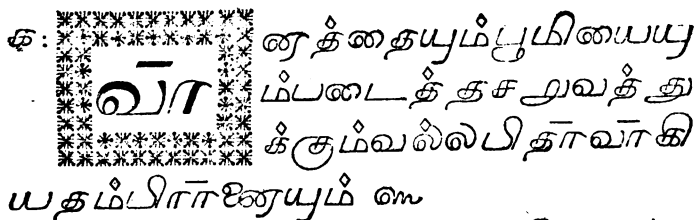 க: வானத்தையும்பூமியையு
ம்படைத்தசறுவத்து
க்கும்வல்லபிதாவாகி
யதம்பிரானையும்